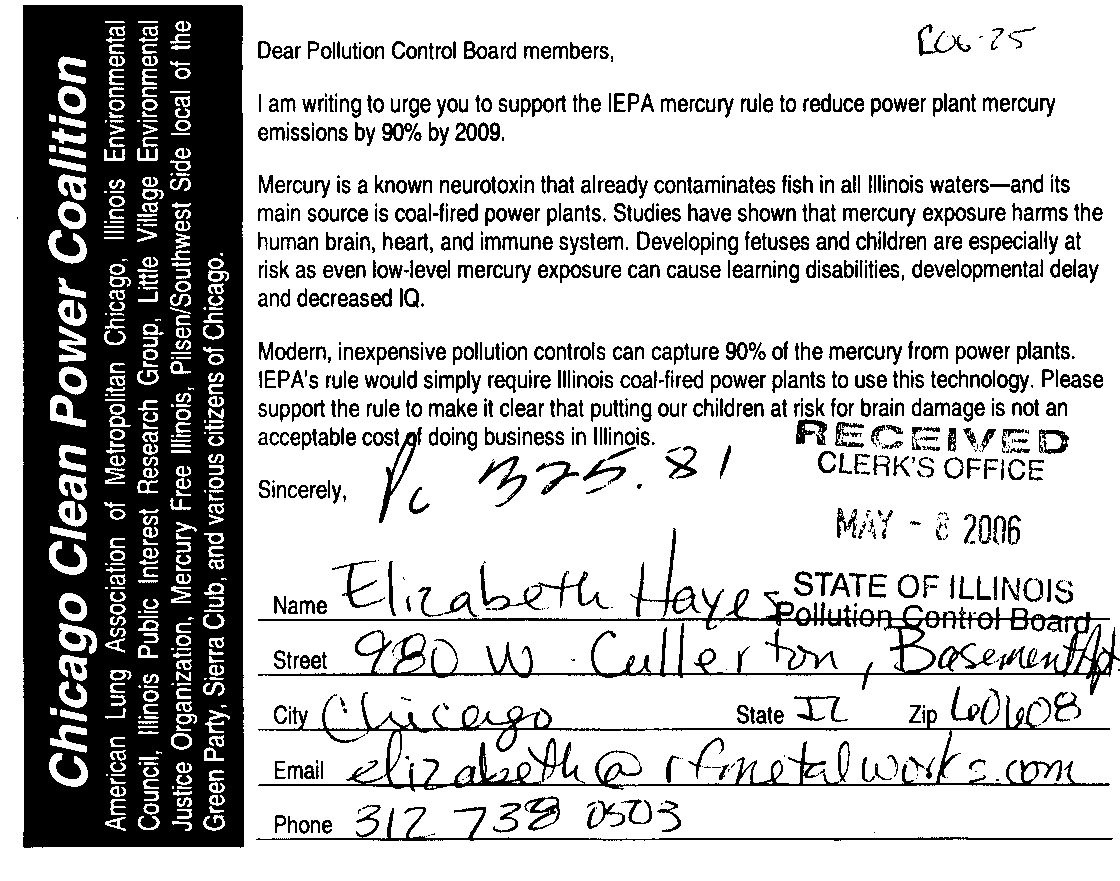 Chicago Clean Power Coalition
American Lung Association of Metropolitan Chicago, Illinois Environmental
Council, Illinois Public Interest Research Group, Little Village Environmental
Justice Organization, Mercury Free Illinois, Pilsen/Southwest Side local of the
Green Party, Sierra Club, and various citizens of Chicago.
R06-25
Dear Pollution Control Board members,
I am writing to urge you to support the IEPA mercury rule to reduce power plant mercury
emissions by 90% by 2009.
Mercury is a known neurotoxin that already contaminates fish in all Illinois waters—and its
main source is coal-fired power plants. Studies have shown that mercury exposure harms the
human brain, heart, and immune system. Developing fetuses and children are especially at
risk as even low-level mercury exposure can cause learning disabilities, developmental delay
and decreased IQ.
Modern, inexpensive pollution controls can capture 90% of the mercury from power plants.
IEPA's rule would simply require Illinois coal-fired power plants to use this technology. Please
support the rule to make it clear that putting our children at risk for brain damage is not an
acceptable cost of doing business in Illinois.
RECEIVED
CLERK'S OFFICE
Sincerely,
Pc 325.81
MAY - 8 2006
STATE OF ILLINOIS
Pollution Control Board
Name Elizabeth Hayes
Street 980 W. Cullerton, Basement Apt
City Chicago State IL Zip 60608
Email elizabeth@rfmetalworks.com
Phone 312 738 0503